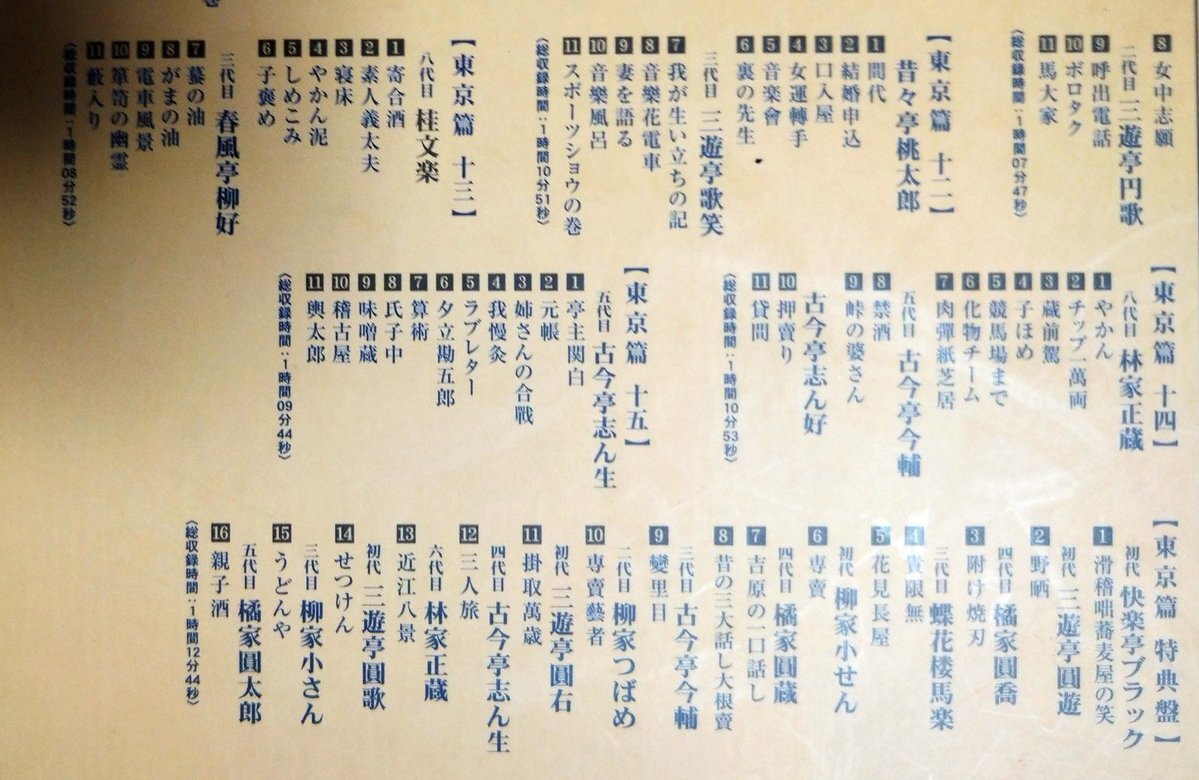 8 女中志願
二代目 三遊亭円歌
9 呼出電話
10 ボロタク
11 馬大家
〈総収録時間：1時間07分47秒〉
【東京篇 十二】
昔々亭桃太郎
1 間代
2 結婚申込
3 口入屋
4 女運轉手
5 音楽會
6 裏の先生
三代目 三遊亭歌笑
7 我が生い立ちの記
8 音樂花電車
9 妻を語る
10 音樂風呂
11 スポーツショウの巻
〈総収録時間：1時間10分51秒〉
【東京篇 十三】
八代目 桂文楽
1 寄合酒
2 素人義太夫
3 寝床
4 やかん泥
5 しめこみ
6 子褒め
三代目 春風亭柳好
7 蟇の油
8 がまの油
9 電車風景
10 箪笥の幽霊
11 藪入り
〈総収録時間：1時間08分52秒〉
【東京篇 十四】
八代目 林家正蔵
1 やかん
2 チップ一萬両
3 蔵前駕
4 子ほめ
5 競馬場まで
6 化物チーム
7 肉彈紙芝居
五代目 古今亭今輔
8 禁酒
9 峠の婆さん
古今亭志ん好
10 押賣り
11 貸間
〈総収録時間：1時間10分53秒〉
【東京篇 十五】
五代目 古今亭志ん生
1 亭主関白
2 元帳
3 姉さんの合戰
4 我慢灸
5 ラブレター
6 夕立勘五郎
7 算術
8 氏子中
9 味噌蔵
10 稽古屋
11 與太郎
〈総収録時間：1時間09分44秒〉
【東京篇 特典盤】
初代 快楽亭ブラック
1 滑稽咄蕎麦屋の笑
初代 三遊亭圓遊
2 野晒
四代目 橘家圓喬
3 附け焼刃
三代目 蝶花楼馬楽
4 貴限無
5 花見長屋
初代 柳家小せん
6 専賣
四代目 橘家圓蔵
7 吉原の一口話し
8 昔の三大話し大根賣
三代目 古今亭今輔
9 變里目
二代目 柳家つばめ
10 専賣藝者
初代 三遊亭圓右
11 掛取萬歳
四代目 古今亭志ん生
12 三人旅
六代目 林家正蔵
13 近江八景
初代 三遊亭圓歌
14 せつけん
三代目 柳家小さん
15 うどんや
五代目 橘家圓太郎
16 親子酒
〈総収録時間：1時間12分44秒〉